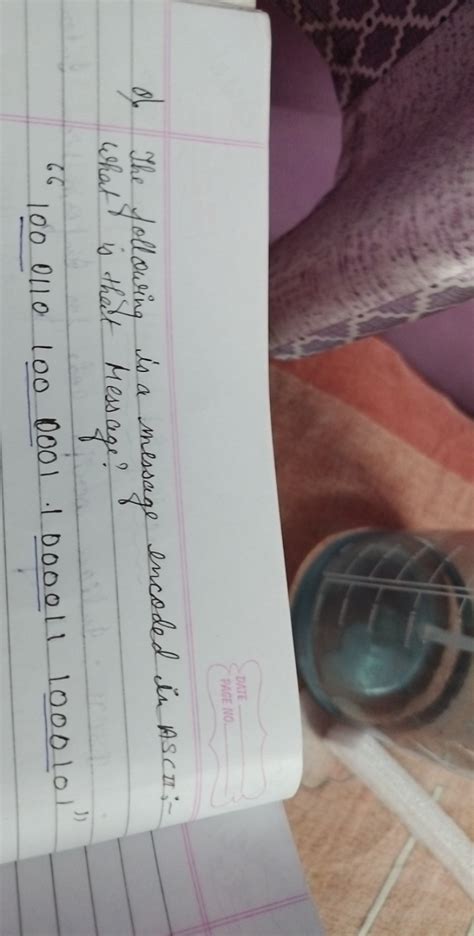 DATE
PAGE NO.
Q The following is a message encoded in ASCII :-
What is that Message?
"100 0110 100 0001 1000011 1000101"